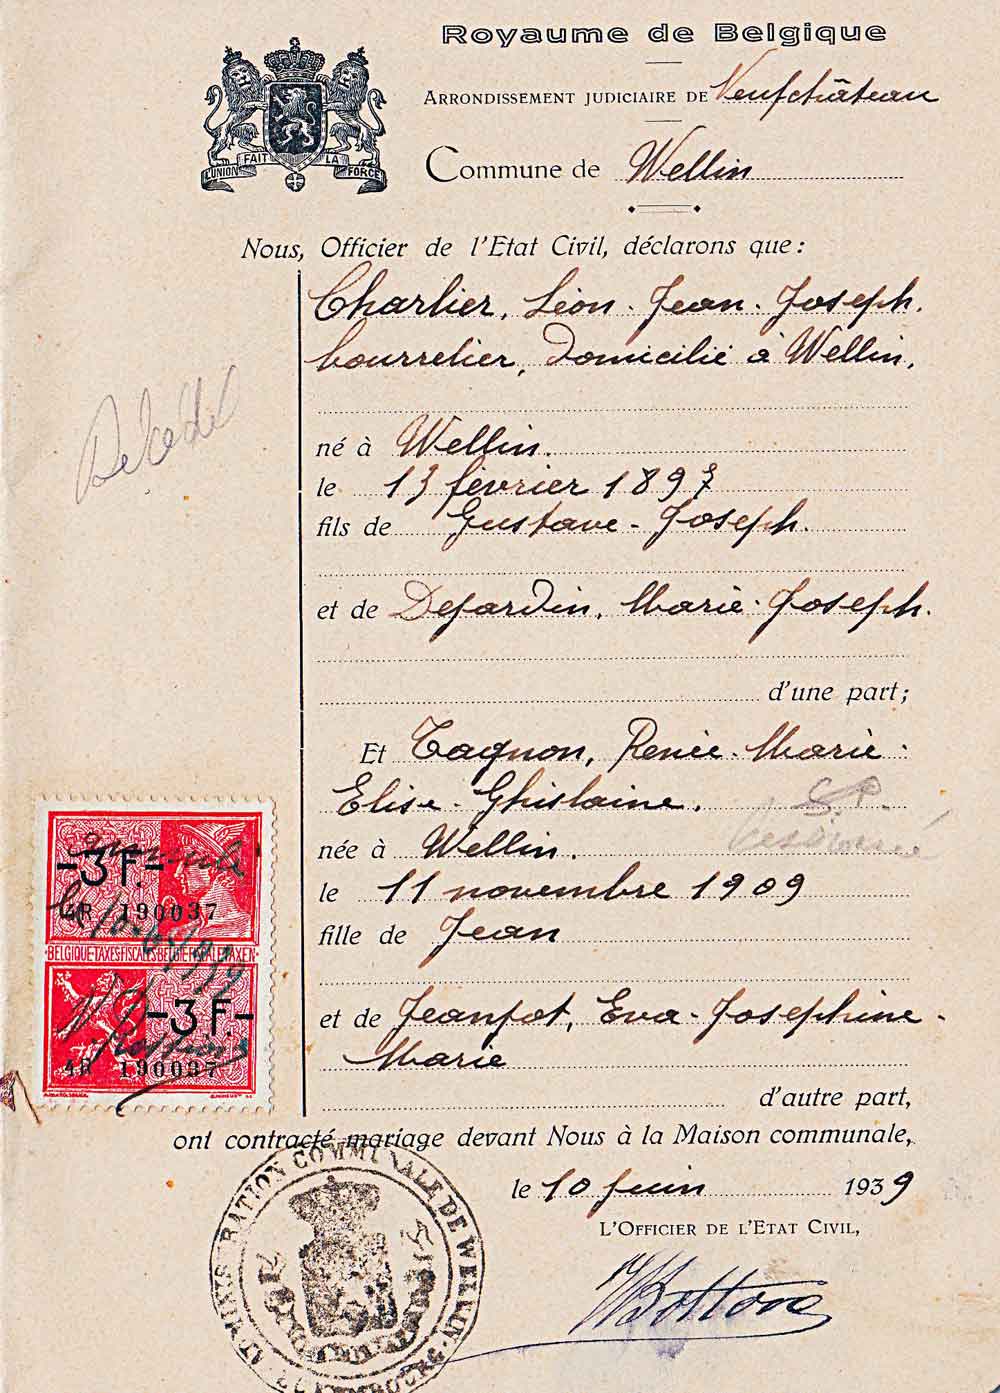 Royaume de Belgique
ARRONDISSEMENT JUDICIAIRE DE Neufchâteau
Commune de Wellin
L'UNION FAIT LA FORCE
Nous, Officier de l'Etat Civil, déclarons que :
Charlier, Léon-Jean-Joseph.
bourrelier, domicilié à Wellin.
Décédé
né à Wellin.
le 13 février 1897
fils de Gustave-Joseph.
et de Dejardin, Marie-Joseph.
d'une part;
Et Tagnon, Renée-Marie-
Elise-Ghislaine. S.P.
née à Wellin.
le 11 novembre 1909
fille de Jean
et de Jeanjot, Eva-Josephine-
Marie
d'autre part,
-3 F.-
4R 190037
BELGIQUE-TAXES FISCALES BELGIE FISCALE TAXEN
-3 F.-
4R 190037
ont contracté mariage devant Nous à la Maison communale,
le 10 juin 1939
L'OFFICIER DE L'ETAT CIVIL,
ADMINISTRATION COMMUNALE DE WELLIN
LUXEMBOURG